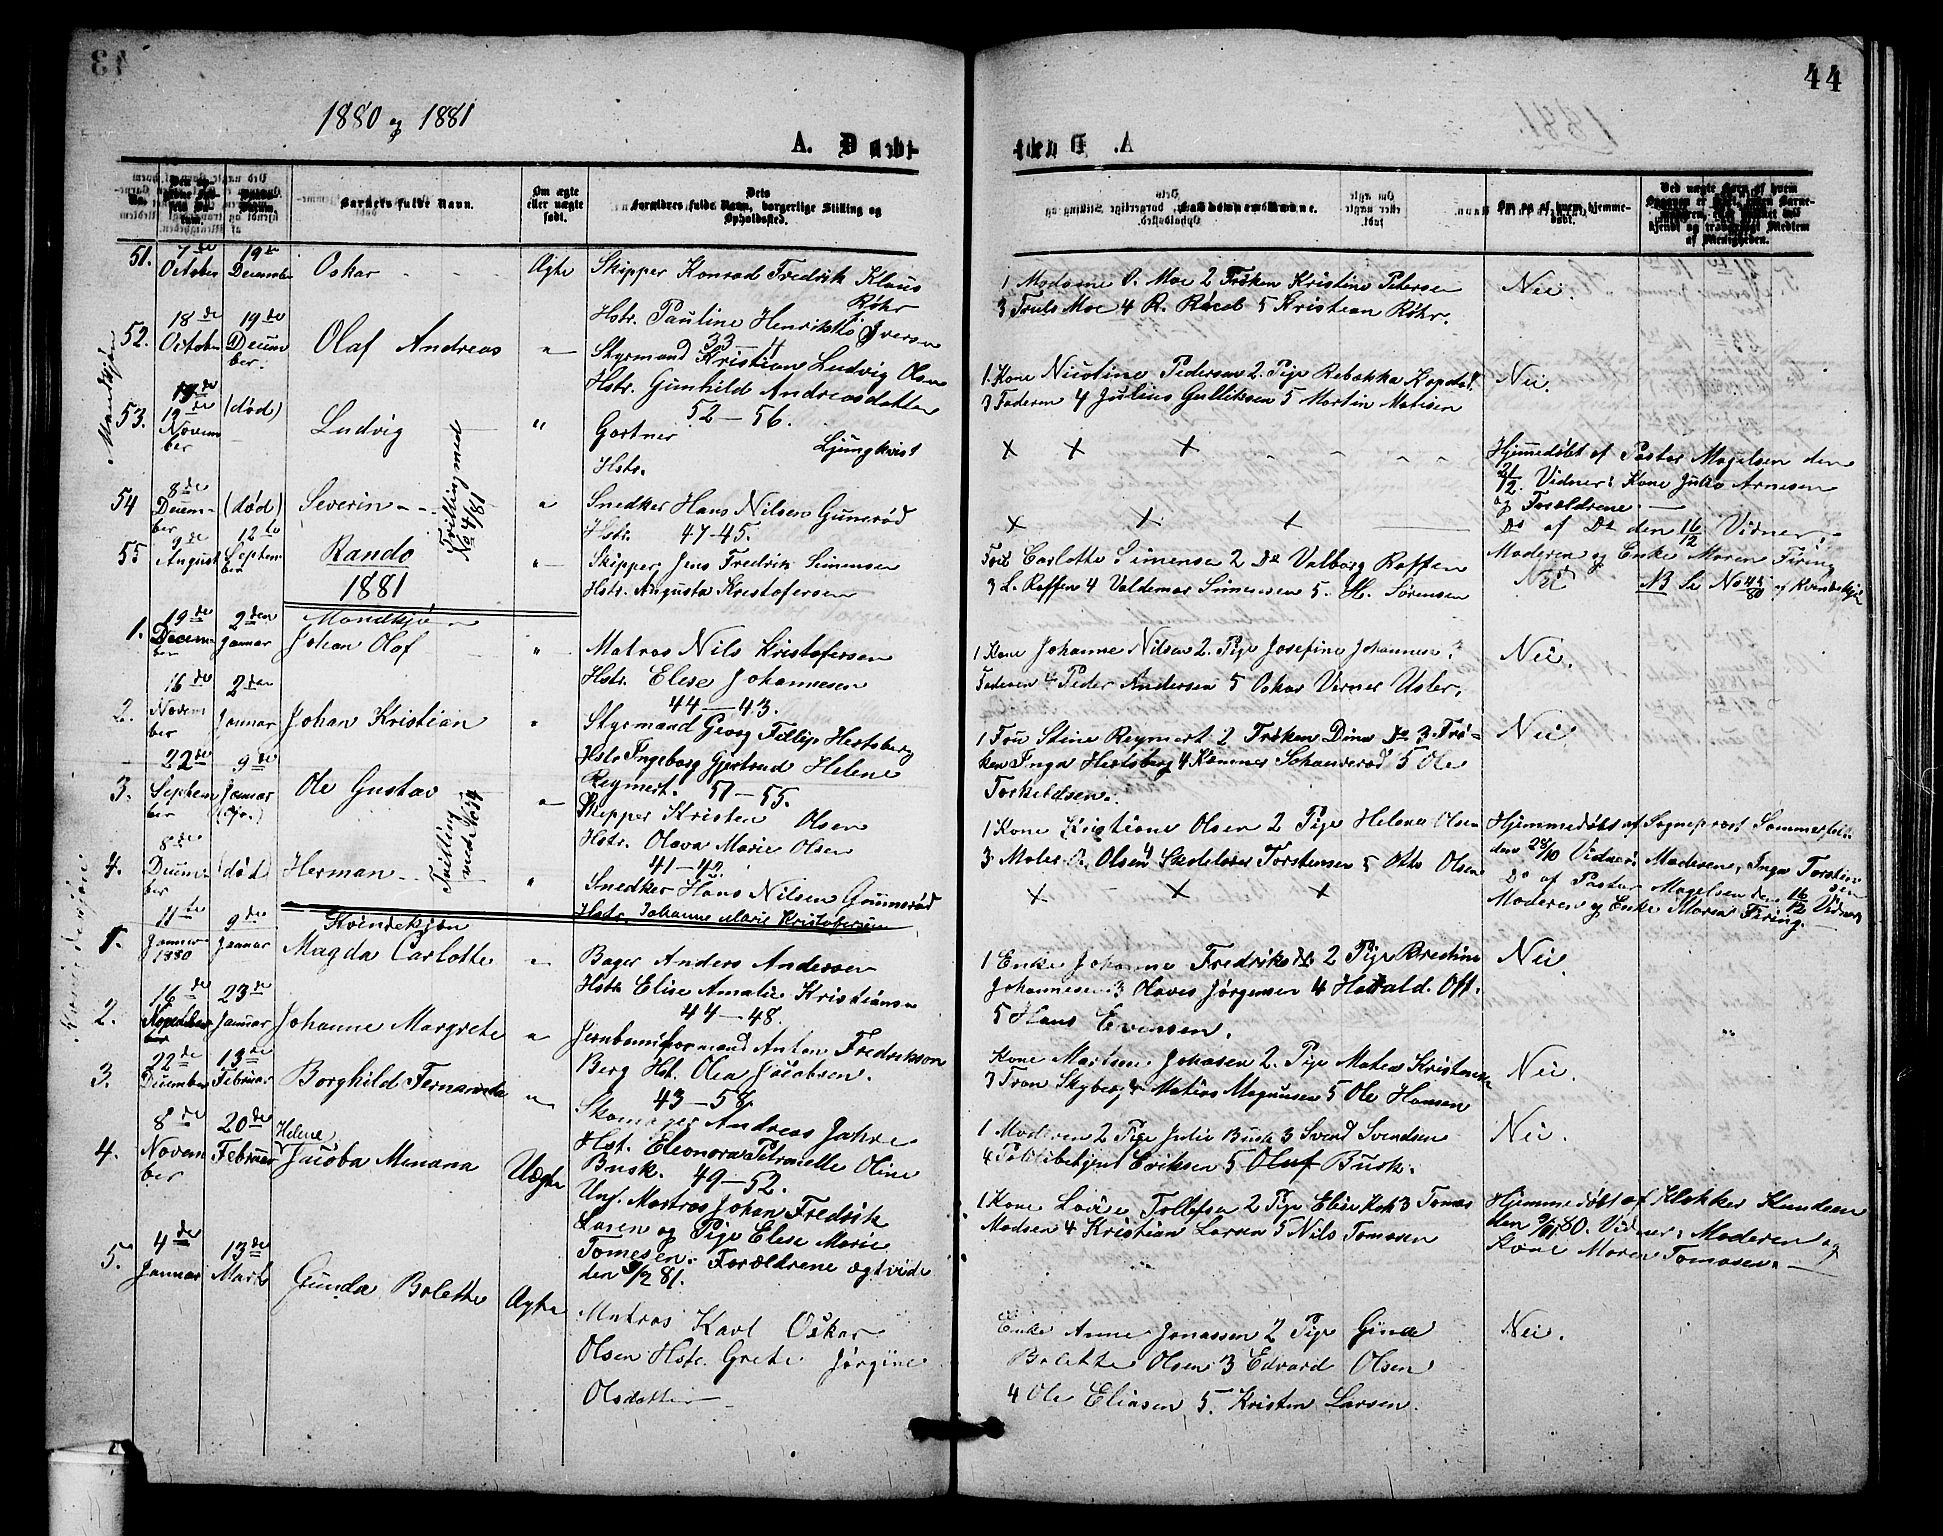 44
1880 og 1881
A. D
A. D
Barnets fulde Navn.
Om ægte
eller uægte
født.
Dets
Forældres fulde Navn, borgerlige Stilling og
Opholdssted.
Om og af hvem hjemme-
døbt.
Mandkjøn
51.
7de
October
19de
December
Oskar
Ægte
Skipper Konrad Fredrik Klaus
Røhr
Hstr. Pauline Henriette Iversen
33
1 Madame O. Moe 2 Frøken Kristine Petersen
3 Truls Moe 4 R. 5 Kristian Røhr.
Nei.
52.
18de
October
19de
Decem
ber.
Olaf Andreas
"
Styrmand Kristian Ludvig Olsen
Hstr. Gunhild Andreasdatter
52 - 56.
1. Kone Nicoline Pedersen 2. Pige Rebekka
3 Faderen 4 Julius Gulliksen 5 Martin Matisen
Nei.
53.
12
Novem
ber
(død)
Ludvig
"
Gartner Ljungkvist
Hstr.
x x x
Hjemmedøbt af Pastor Magelsen den
2/12. Vidner: Kone Julie Arnesen
og Forældrene.
54
8de
Decem-
ber
(død)
Severin
Trilling med
No 4/81
"
Snedker Hans Nilsen Gunerød
Hstr. 47-45.
x x x
Do af Do den 16/12 Vidner,
Moderen og Enke Maren Firing
55
9de
August
12te
Septem
ber
Rando
"
Skipper Jens Fredrik Simensen
Hstr. Augusta Kristofersen
Carlotte Simensen 2 Do Valborg Roffen
3 L. Roffen 4 Valdemar Simensen 5. M. Sørensen
Nei
NB Se No 45/80 af Kvindekjøn
1881
Mandkjøn
1.
19de
Decem-
ber
2den
Januar
Johan Olaf
"
Matros Nils Kristofersen
Hstr. Elise Johannesen
44 - 43.
1 Kone Johanne Nilsen 2. Pige Josefine Johannesen
Faderen 4 Peder Andersen 5 Oskar Verner Usler.
Nei.
2.
16de
Novem
ber
2den
Januar
Johan Kristian
"
Styrmand Georg Fillip Hertsberg
Hstr. Ingeborg Gjertrud Helene
Reymert. 51 - 55.
1 Fru Stine Reymert 2 Frøken Dina Do 3 Frø-
ken Inga Hertsberg 4 5 Ole
Torkildsen.
Nei
3.
22de
Septem
ber
9de
Januar
Ole Gustav
"
Skipper Kristen Olsen
Hstr. Olava Marie Olsen
41 - 42.
1 Kone Kristiane Olsen 2 Pige Helene Olsen
3. Maler O. Olsen 4 Skolelærer Torstensen 5 Otto Olsen
Hjemmedøbt af Sogneprest Sommerfeldt
den 28/10 Vidner: Moderen, Inga Torstensen
4.
8de
Decem-
ber
(død)
Herman
Trilling
med No 54
"
Snedker Hans Nilsen Gunnerød
Hstr. Johanne Marie Kristofersen
x x x
Do af Pastor Magelsen den 16/12 Vidner
Moderen og Enke Maren Firing.
Kvindekjøn
Kvindekjøn
1.
11te
Januar
1880
9de
Januar
Magda Carlotte
"
Bager Anders Andersen
Hstr. Elise Amalie Kristiansen
44 - 48.
1 Enke Johanne Fredriksen 2 Pige Kristine
Johannesen 3 Olaves Jørgensen 4 Harald. Ott.
5 Hans Evensen.
Nei
2.
16de
23de
Januar
Johanne Margrete
"
Jernbaneformand Anton Fredrikson
Berg Hst. Olea Jacobsen.
43 - 58
Kone Martine Johasen 2. Pige Matea Kristensen
3 Tron Skyberg 4 Matias Magnusen 5 Ole Hansen
Nei.
3.
22de
December
13de
Februar
Borghild Fernanda
"
Skomager Andreas Jahre
Hst. Eleonora Petronelle Oline
Busk. 49 - 52.
1 Moderen 2 Pige Julie Busk 3 Svend Svendsen
4 Politibetjent Eriksen 5 Oluf Busk.
Nei.
4.
8de
Novem
ber
20de
Februar
Helene
Jacoba Minana
Uægte
Unf. Martros Johan Fredrik
Larsen og Pige Elise Marie
Tomesen. Forældrene ægtviede
den 3/2 81.
1 Kone Lovise Tollefsen 2 Pige Elise 3 Tomas
Madsen 4 Kristian Larsen 5 Nils Tomasen
Hjemmedøbt af Klokker Knudsen
den 9/11 80. Vidner: Moderen og
Kone Maren Tomasen.
5.
4de
Januar
13de
Marts
Gunda Bolette
Ægte
Matros Karl Oskar
Olsen Hstr. Grete Jørgine
Olsdatter
Enke Anne Jonassen 2 Pige Ginda
Bolette Olsen 3 Edvard Olsen
4 Ole Eliasen 5. Kristen Larsen.
Nei.